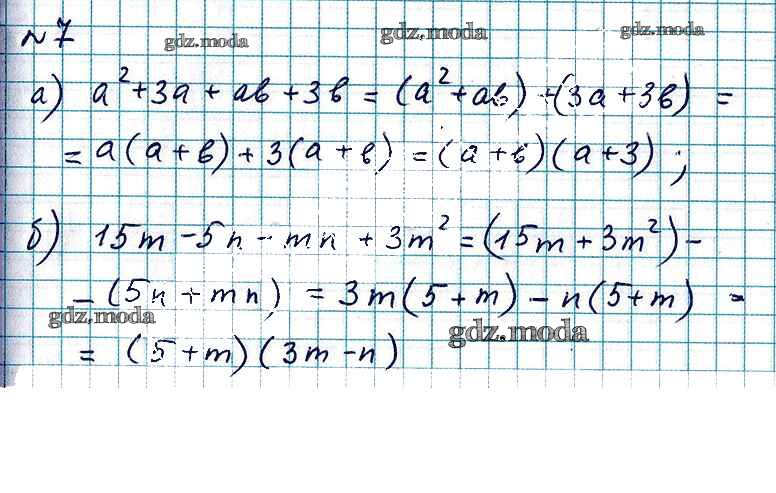 № 7
gdz.moda gdz.moda gdz.moda
а) a² + 3a + ab + 3b = (a² + ab) + (3a + 3b) =
= a(a + b) + 3(a + b) = (a + b)(a + 3);
б) 15m - 5n - mn + 3m² = (15m + 3m²) -
- (5n + mn) = 3m(5 + m) - n(5 + m) =
gdz.moda gdz.moda
= (5 + m)(3m - n)